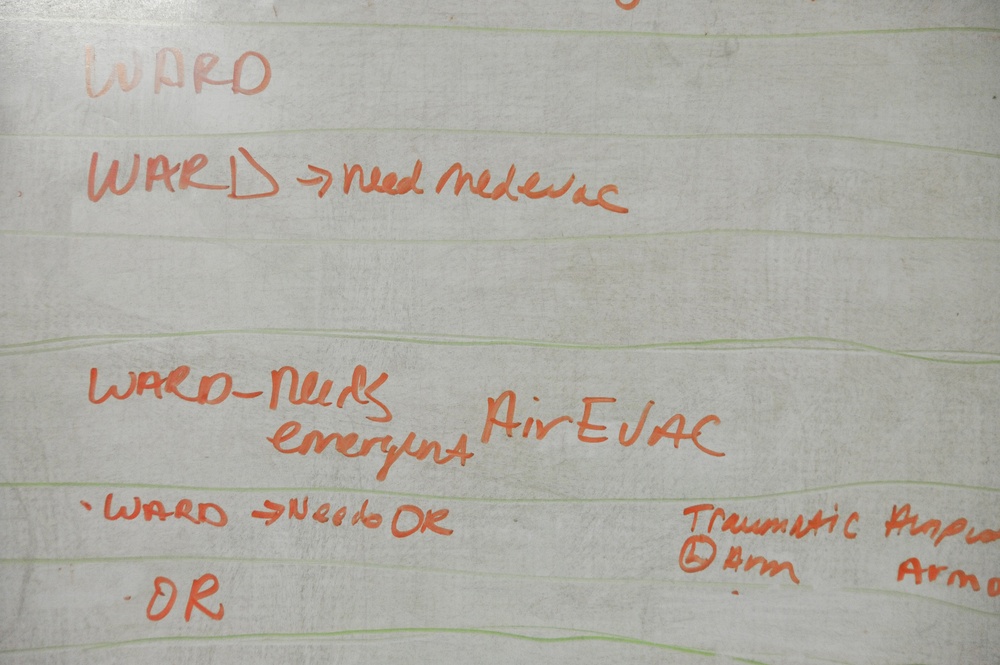 WARD
WARD → need medevac
WARD - needs
emergent Air EVAC
· WARD → Needs OR
Traumatic
Ⓛ Arm
· OR